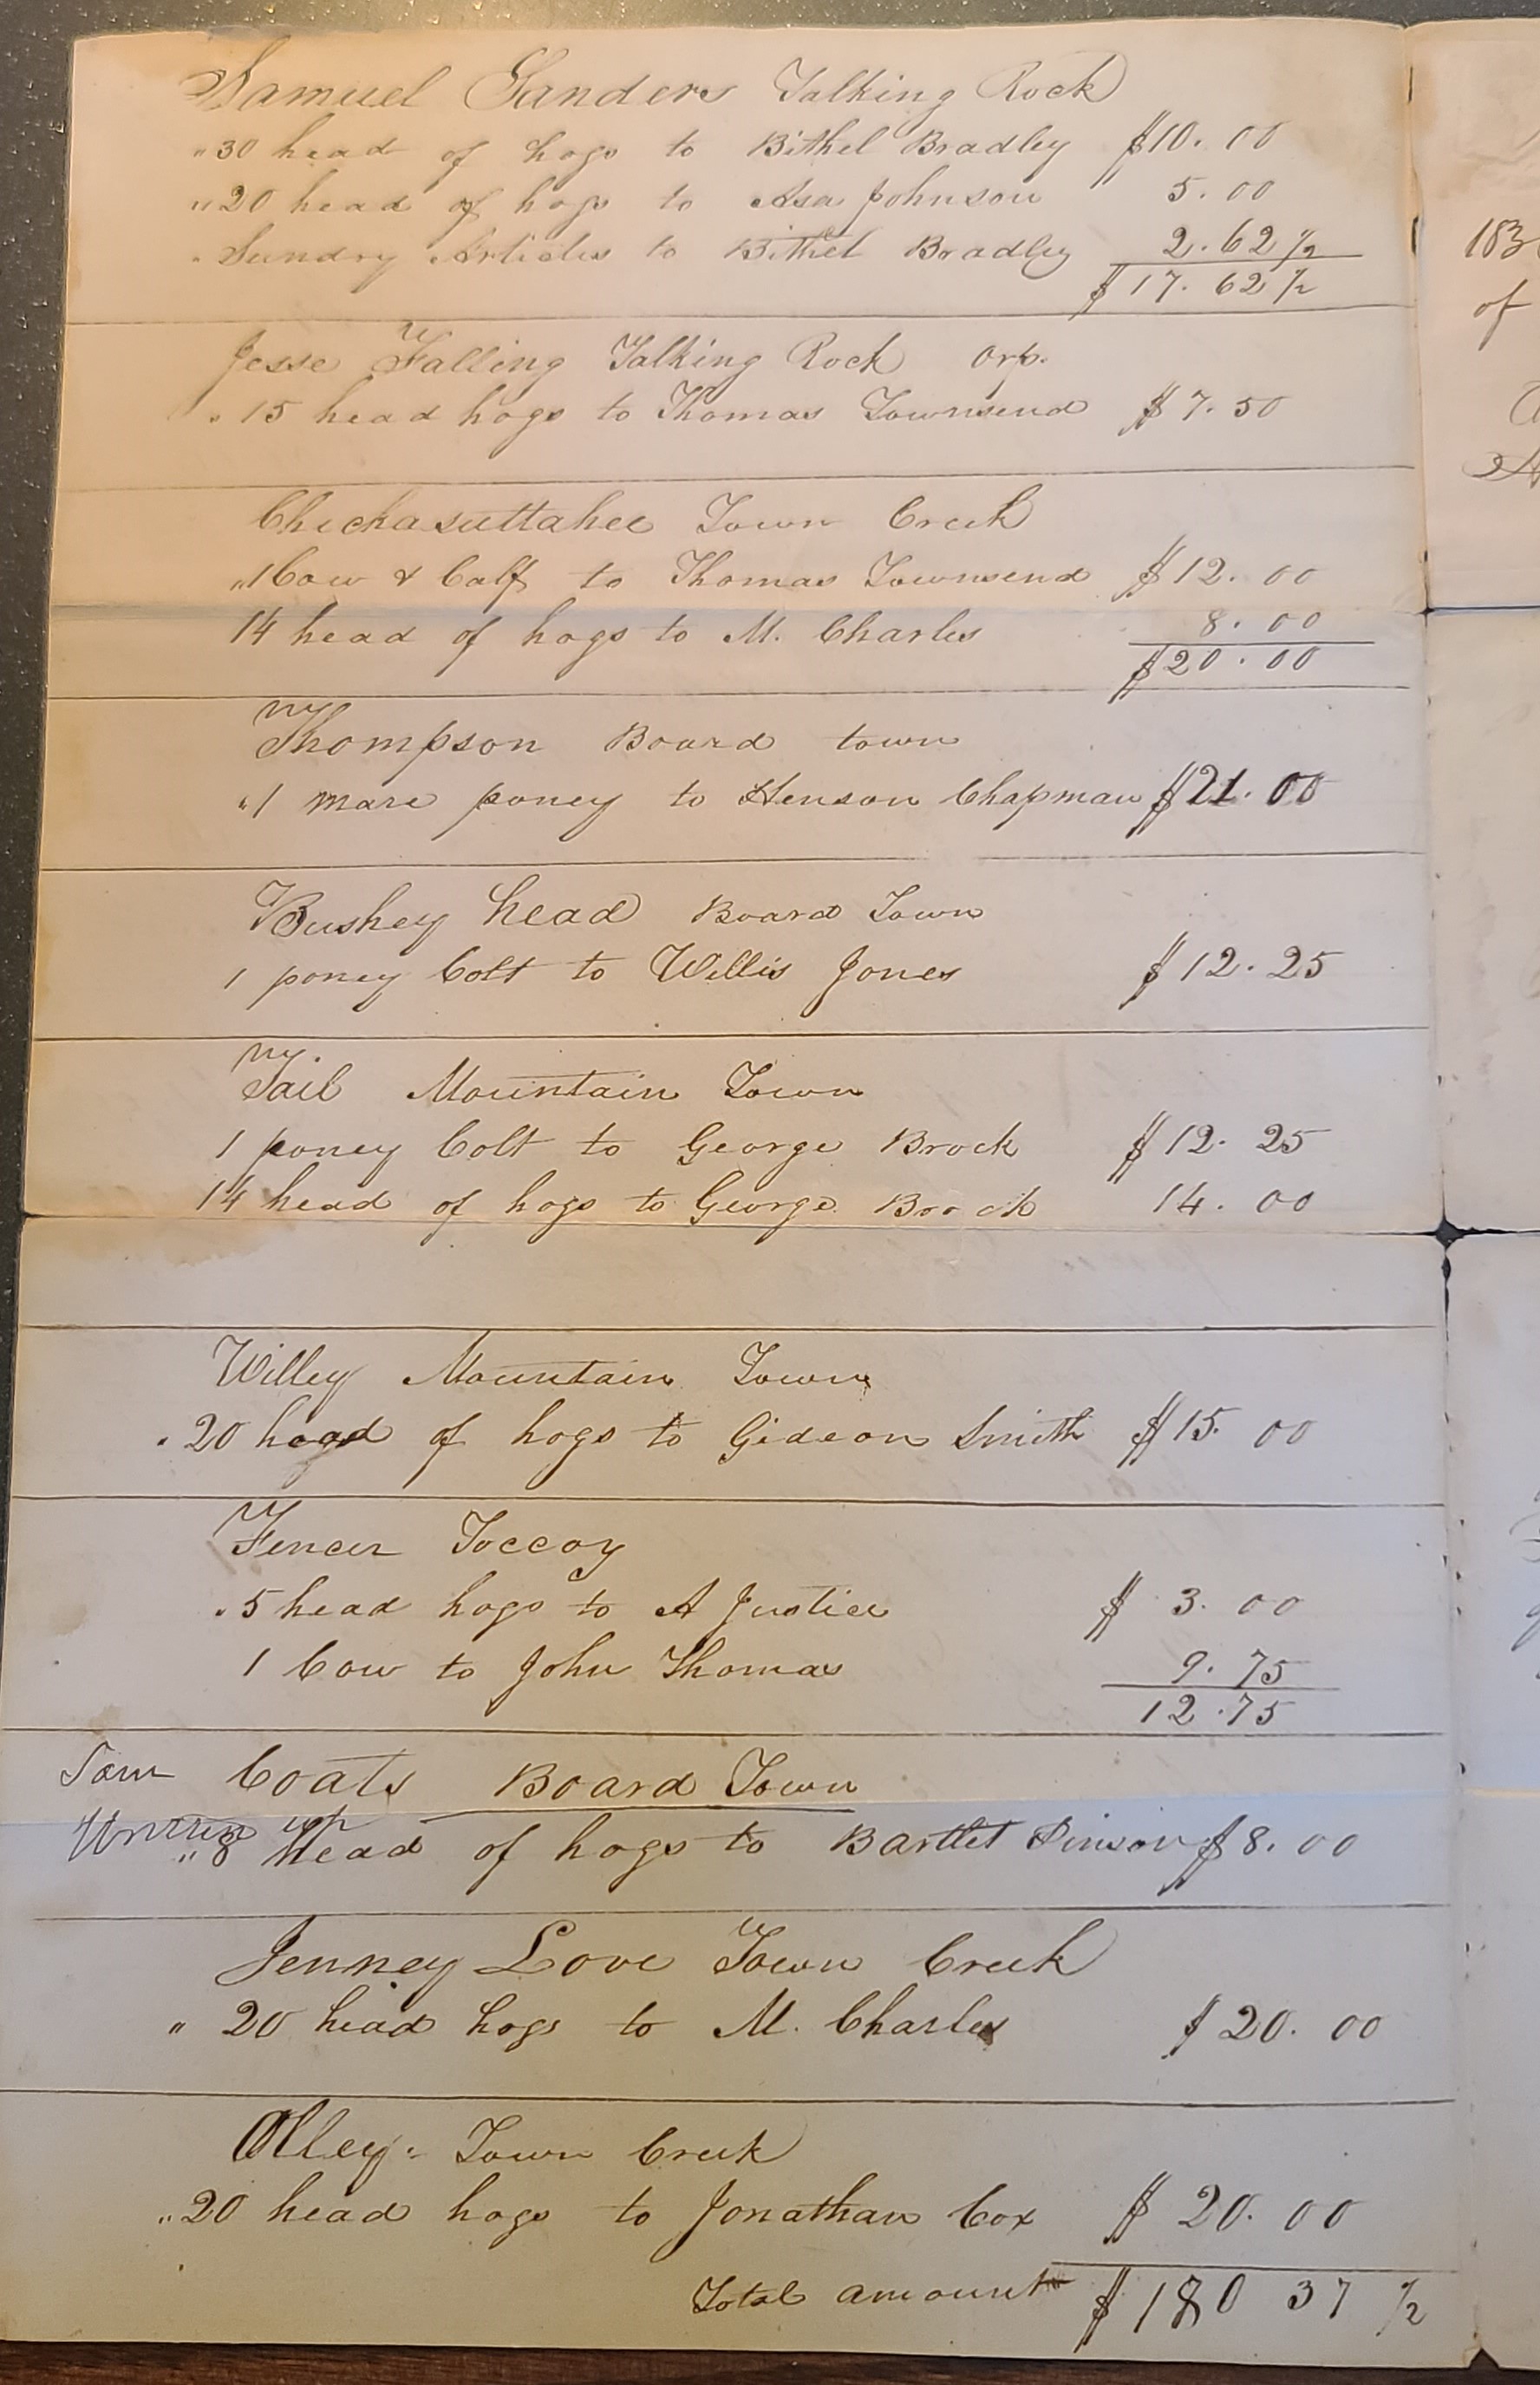 Samuel Sanders Talking Rock
" 30 head of hogs to Bithel Bradley $10.00
" 20 head of hogs to Asa Johnson 5.00
" Sundry Articles to Bithel Bradley 2.62 1/2
$17.62 1/2
Jesse Falling Talking Rock Orp.
" 15 head hogs to Thomas Townsend $7.50
Chickasuttahee Town Creek
" 1 Cow & Calf to Thomas Townsend $12.00
14 head of hogs to M. Charles 8.00
$20.00
Thompson Board town
" 1 mare poney to Henson Chapman $21.00
Bushey head Board Town
1 poney Colt to Willis Jones $12.25
Tail Mountain Town
1 poney Colt to George Brock $12.25
14 head of hogs to George Brock 14.00
Willey Mountain Town
" 20 head of hogs to Gideon Smith $15.00
Fencer Toccoy
" 5 head hogs to A Justice $3.00
1 Cow to John Thomas 9.75
12.75
Tom Coats Board Town
up
" 8 head of hogs to Bartlet Pinson $8.00
Jenney Love Town Creek
" 20 head hogs to M. Charles $20.00
Olley. Town Creek
" 20 head hogs to Jonathan Cox $20.00
Total amount $180 37 1/2
183
of